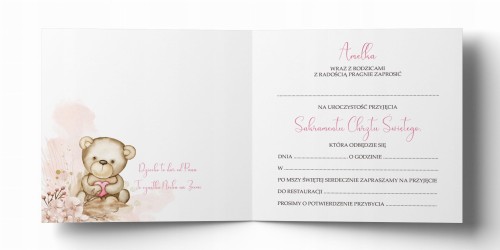 Dziecko to dar od Boga
To cząstka Nieba na Ziemi
Amelka
WRAZ Z RODZICAMI
Z RADOŚCIĄ PRAGNIE ZAPROSIĆ
NA UROCZYSTOŚĆ PRZYJĘCIA
Sakramentu Chrztu Świętego,
KTÓRA ODBĘDZIE SIĘ
DNIA O GODZINIE
W
PO MSZY ŚWIĘTEJ SERDECZNIE ZAPRASZAMY NA PRZYJĘCIE
DO RESTAURACJI
PROSIMY O POTWIERDZENIE PRZYBYCIA